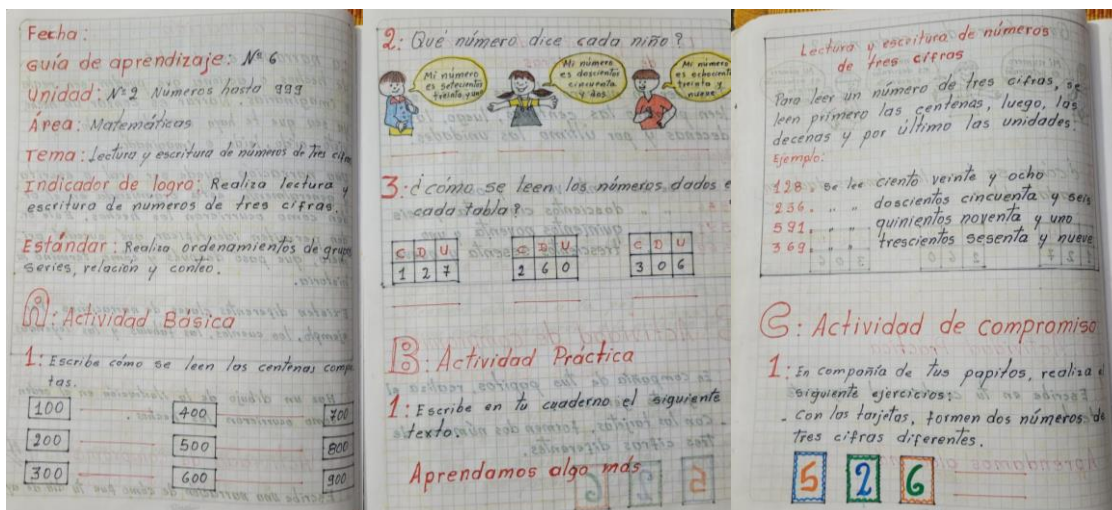 Fecha:
Guía de aprendizaje: Nº 6
Unidad: Nº 2 Números hasta 999
Área: Matemáticas
Tema: Lectura y escritura de números de tres cifra
Indicador de logro: Realiza lectura y
escritura de números de tres cifras.
Estándar: Realiza ordenamientos de grupos
series, relación y conteo.
A: Actividad Básica
1: Escribe cómo se leen las centenas comple
tas.
100 400 700
200 500 800
300 600 900
2: Qué número dice cada niño?
Mi número
es setecientos
treinta y uno
Mi número
es doscientos
cincuenta
y dos
Mi número
es ochocientos
treinta y
nueve
3: ¿cómo se leen los números dados e
cada tabla?
C D U
1 2 7
C D U
2 6 0
C D U
3 0 6
B: Actividad Práctica
1: Escribe en tu cuaderno el siguiente
texto.
Aprendamos algo más
Lectura y escritura de números
de tres cifras
Para leer un número de tres cifras, se
leen primero las centenas, luego, las
decenas y por último las unidades.
Ejemplo:
128. se lee ciento veinte y ocho
256. " " doscientos cincuenta y seis
591. " " quinientos noventa y uno
369. " " trescientos sesenta y nueve
C: Actividad de compromiso
1: En compañía de tus papitos, realiza el
siguiente ejercicios:
- Con las tarjetas, formen dos números de
tres cifras diferentes.
5 2 6